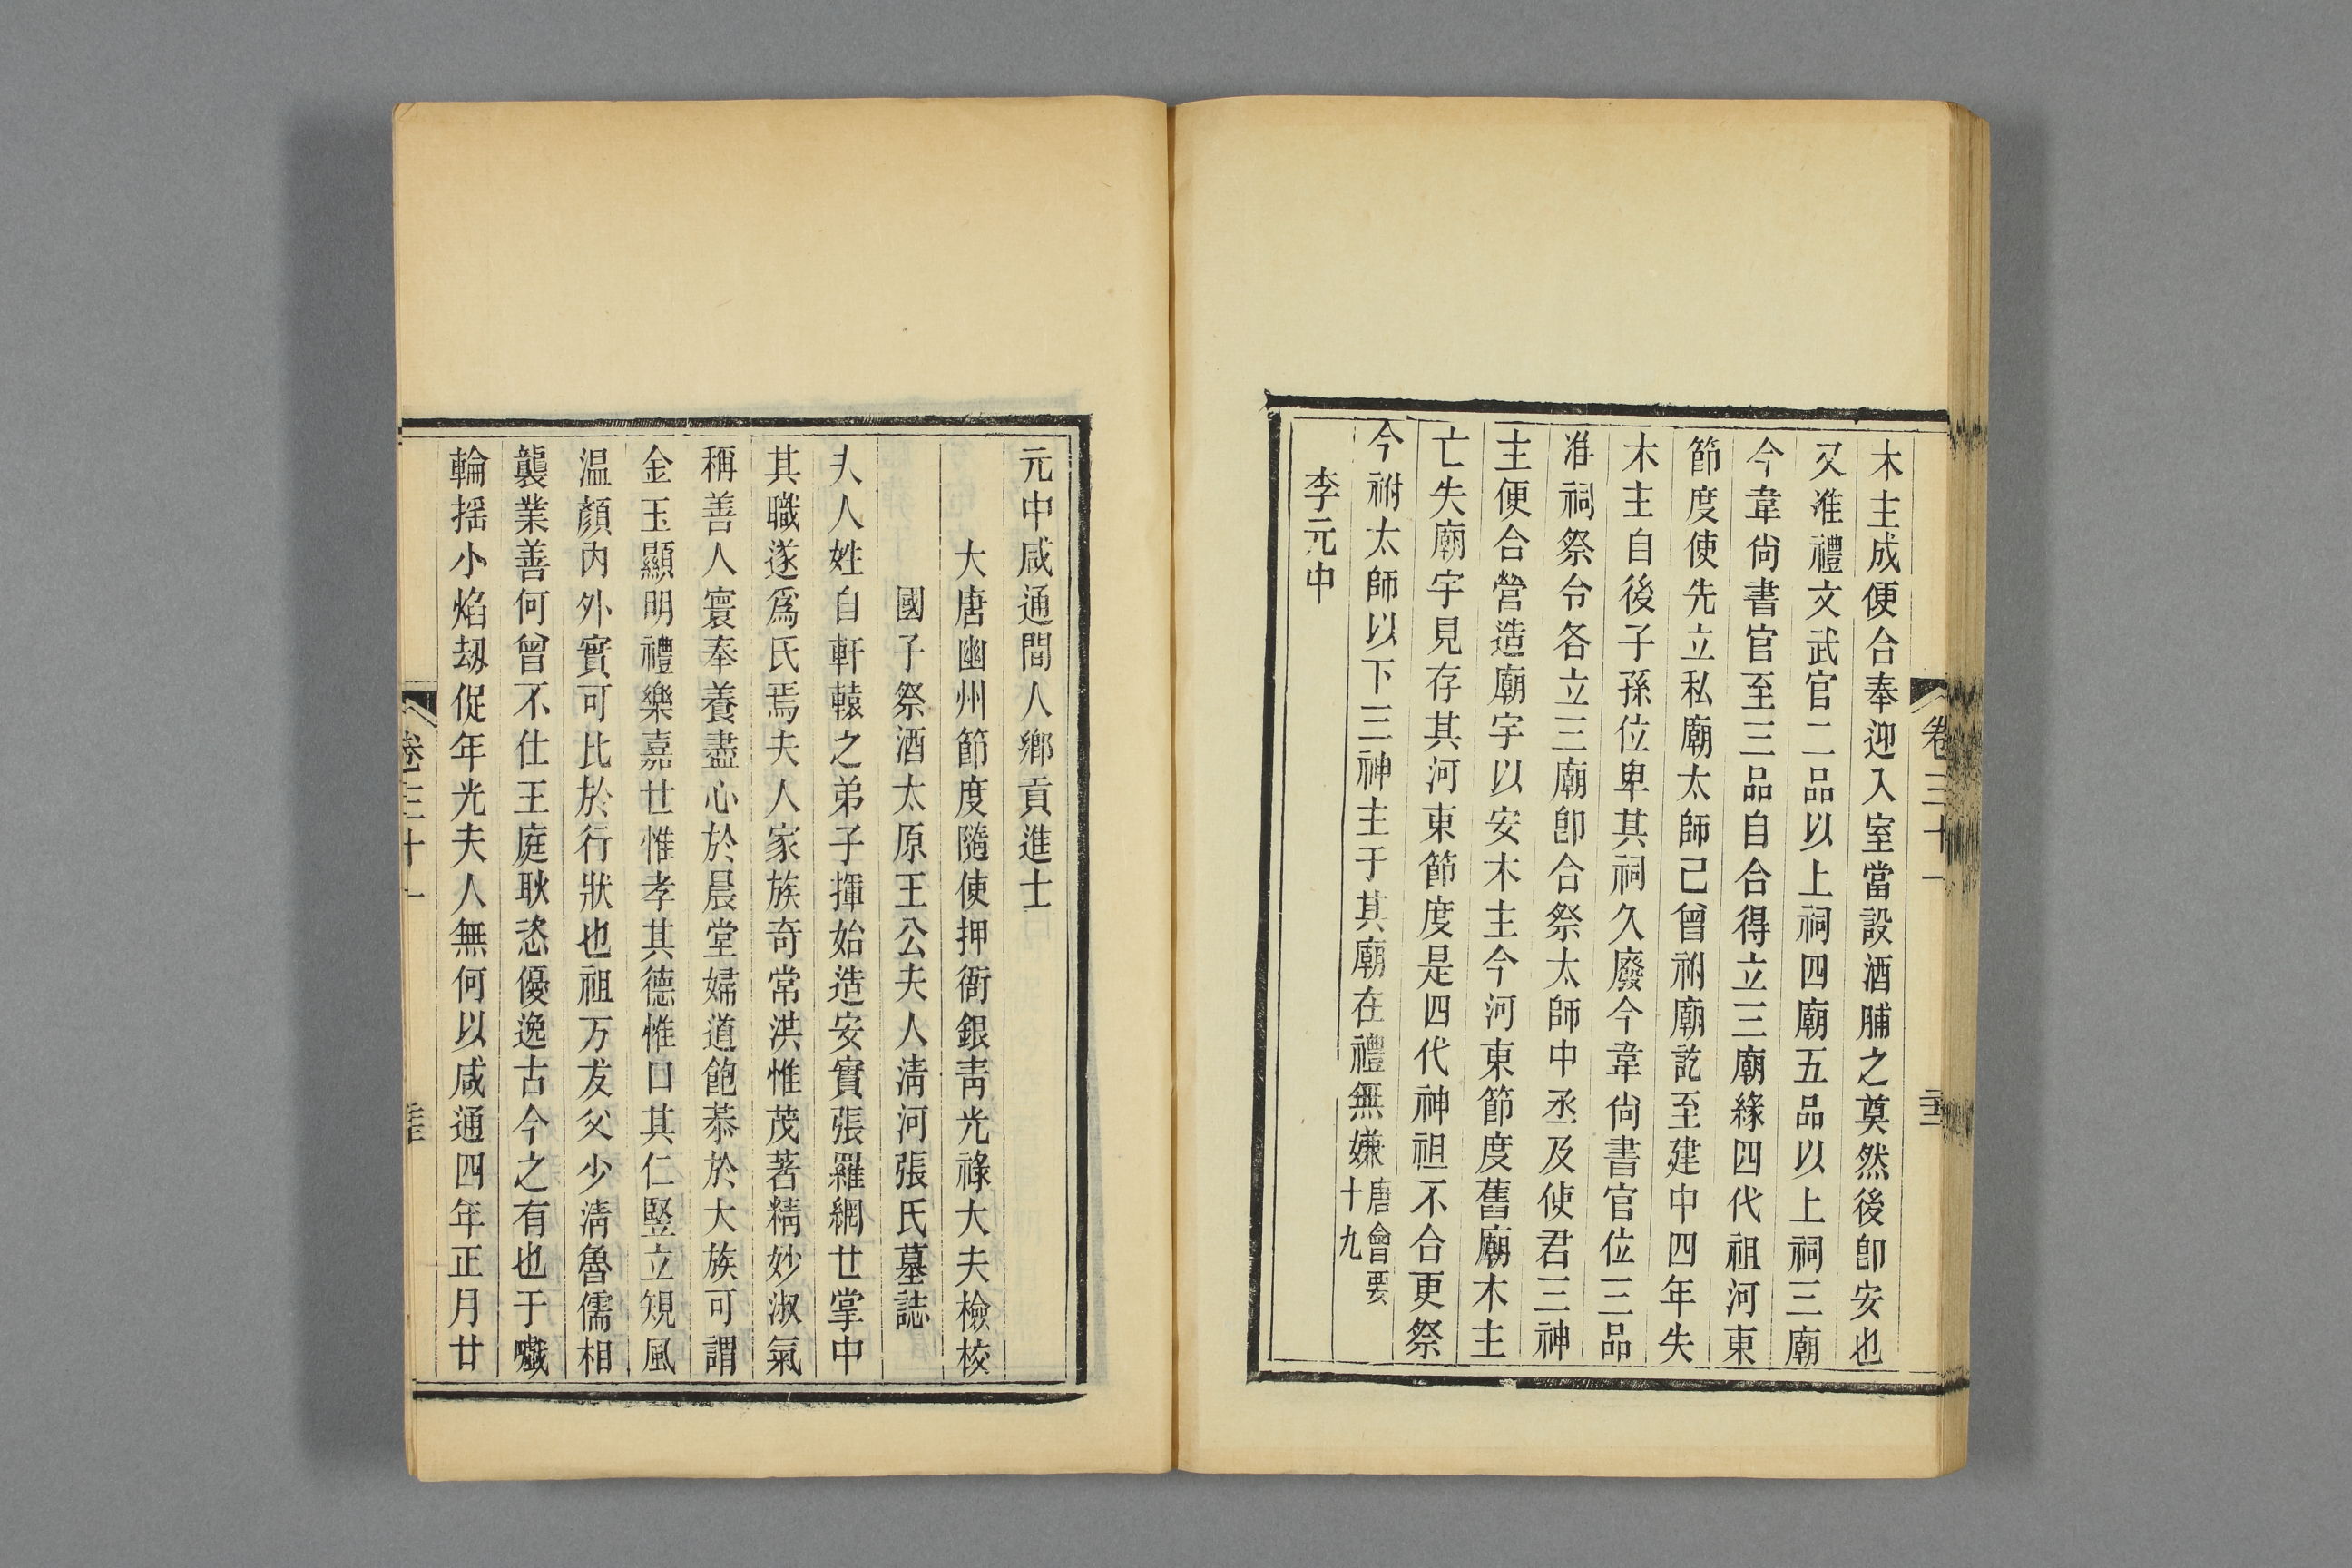 木主成便合奉迎入室當設酒脯之奠然後卽安也
又准禮文武官二品以上祠四廟五品以上祠三廟
今韋尙書官至三品自合得立三廟緣四代祖河東
節度使先立私廟太師已曾祔廟訖至建中四年失
木主自後子孫位卑其祠久廢今韋尙書官位三品
准祠祭令各立三廟卽合祭太師中丞及使君三神
主便合營造廟宇以安木主今河東節度舊廟木主
亡失廟宇見存其河東節度是四代神祖不合更祭
今祔太師以下三神主于其廟在禮無嫌唐會要十九
李元中
卷三十一
元中咸通間人鄉貢進士
大唐幽州節度隨使押衙銀靑光祿大夫檢校
國子祭酒太原王公夫人淸河張氏墓誌
夫人姓自軒轅之弟子揮始造安實張羅網世掌中
其職遂爲氏焉夫人家族奇常洪惟茂著精妙淑氣
稱善人寰奉養盡心於晨堂婦道飽恭於大族可謂
金玉顯明禮樂嘉世惟孝其德惟口其仁竪立規風
温顏内外實可比於行狀也祖万友父少淸魯儒相
襲業善何曾不仕王庭耿恣優逸古今之有也于嚱
輪摇小焰刼促年光夫人無何以咸通四年正月廿
卷三十一